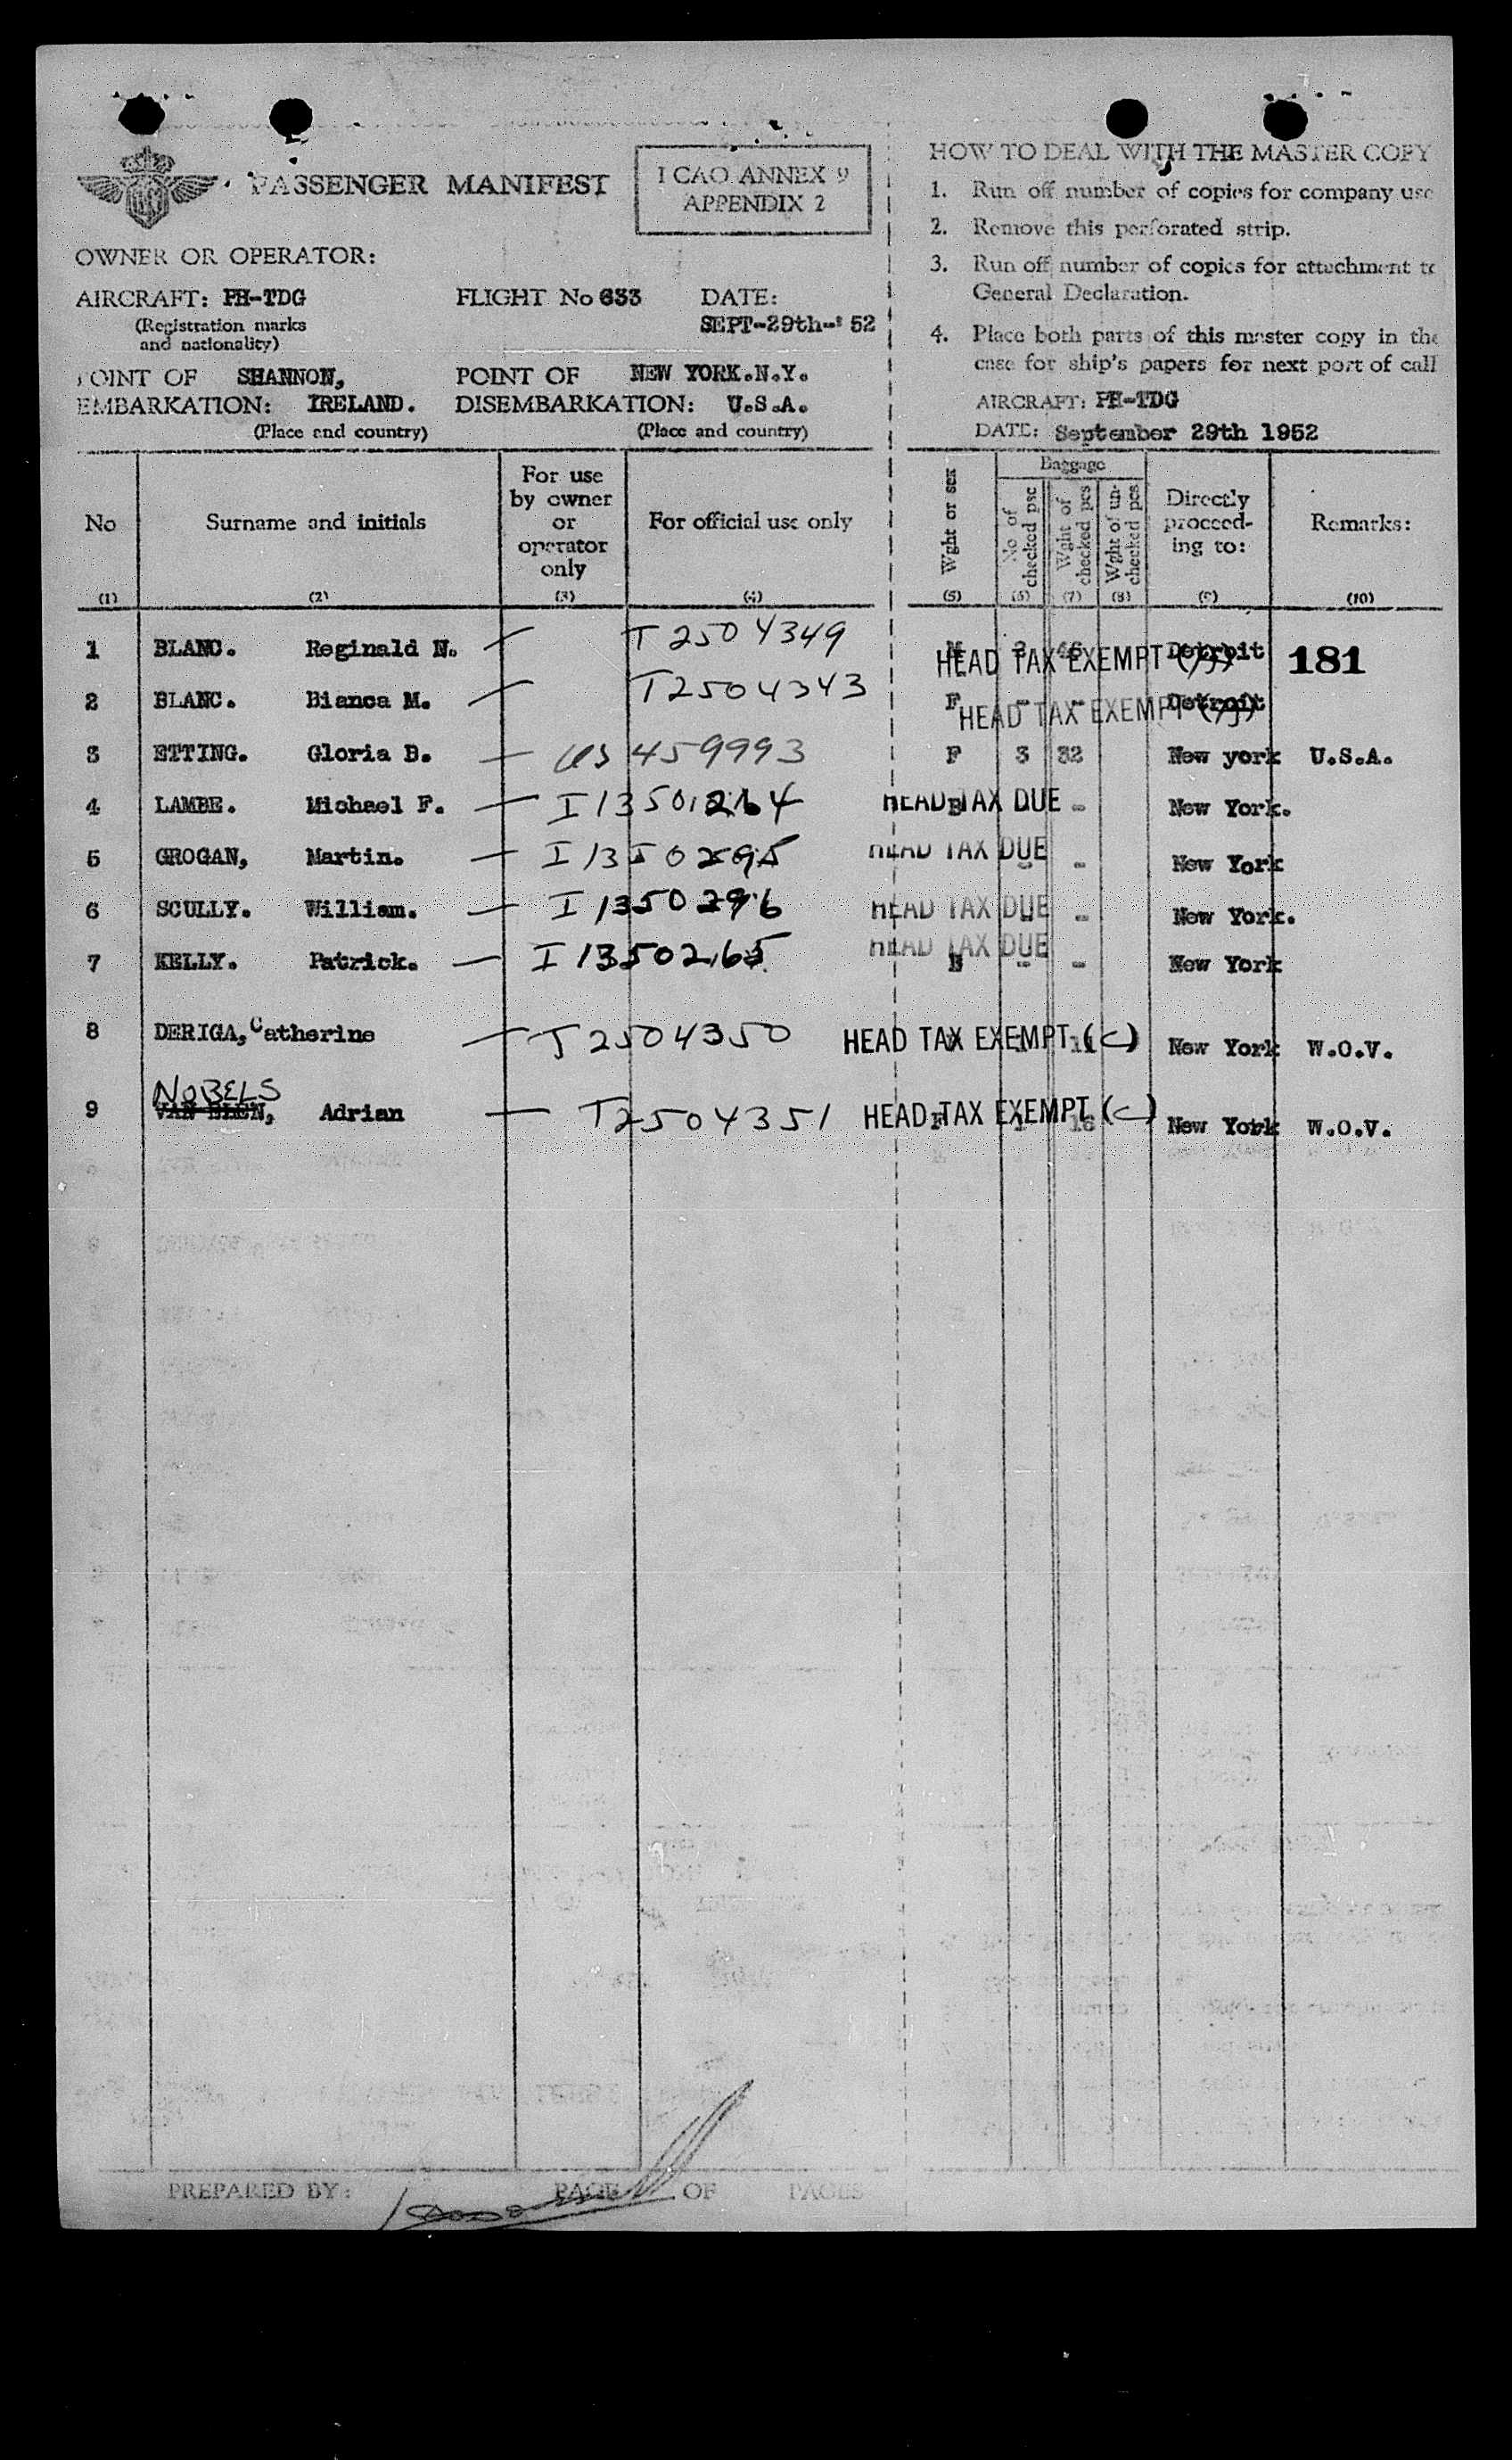 PASSENGER MANIFEST
I CAO ANNEX 9
APPENDIX 2
OWNER OR OPERATOR:
AIRCRAFT: PH-TDG FLIGHT No 633 DATE:
(Registration marks SEPT-29th-' 52
and nationality)
POINT OF SHANNON, POINT OF NEW YORK.N.Y.
EMBARKATION: IRELAND. DISEMBARKATION: U.S.A.
(Place and country) (Place and country)
HOW TO DEAL WITH THE MASTER COPY
1. Run off number of copies for company use
2. Remove this perforated strip.
3. Run off number of copies for attachment to
General Declaration.
4. Place both parts of this master copy in the
case for ship's papers for next port of call
AIRCRAFT: PH-TDG
DATE: September 29th 1952
No
(1)
Surname and initials
(2)
For use
by owner
or
operator
only
(3)
For official use only
(4)
Wght or sex
(5)
Baggage
No of
checked psc
(6)
Wght of
checked pcs
(7)
Wght of un-
checked pcs
(8)
Directly
proceed-
ing to:
(9)
Remarks:
(10)
1 BLANC. Reginald N. T2504349 M 2 46 HEAD TAX EXEMPT Detroit 181
2 BLANC. Bianca M. T2504343 F - - HEAD TAX EXEMPT Detroit
3 ETTING. Gloria B. US 459993 F 3 32 New york U.S.A.
4 LAMBE. Michael F. I13501264 HEAD TAX DUE - New York.
5 GROGAN, Martin. I13502695 HEAD TAX DUE - - New York
6 SCULLY. William. I1350296 HEAD TAX DUE - - New York.
7 KELLY. Patrick. I1350265 HEAD TAX DUE - - New York
8 DERIGA, Catherine T2504350 HEAD TAX EXEMPT (C) New York W.O.V.
NOBELS
9 VAN ELEN, Adrian T2504351 HEAD TAX EXEMPT (C) 16 New York W.O.V.
PREPARED BY: PAGE OF PAGES